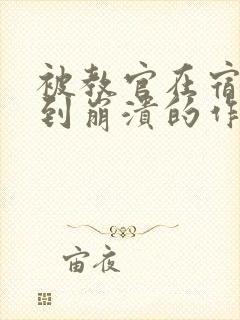 被教官在宿
到崩溃的作
宙夜